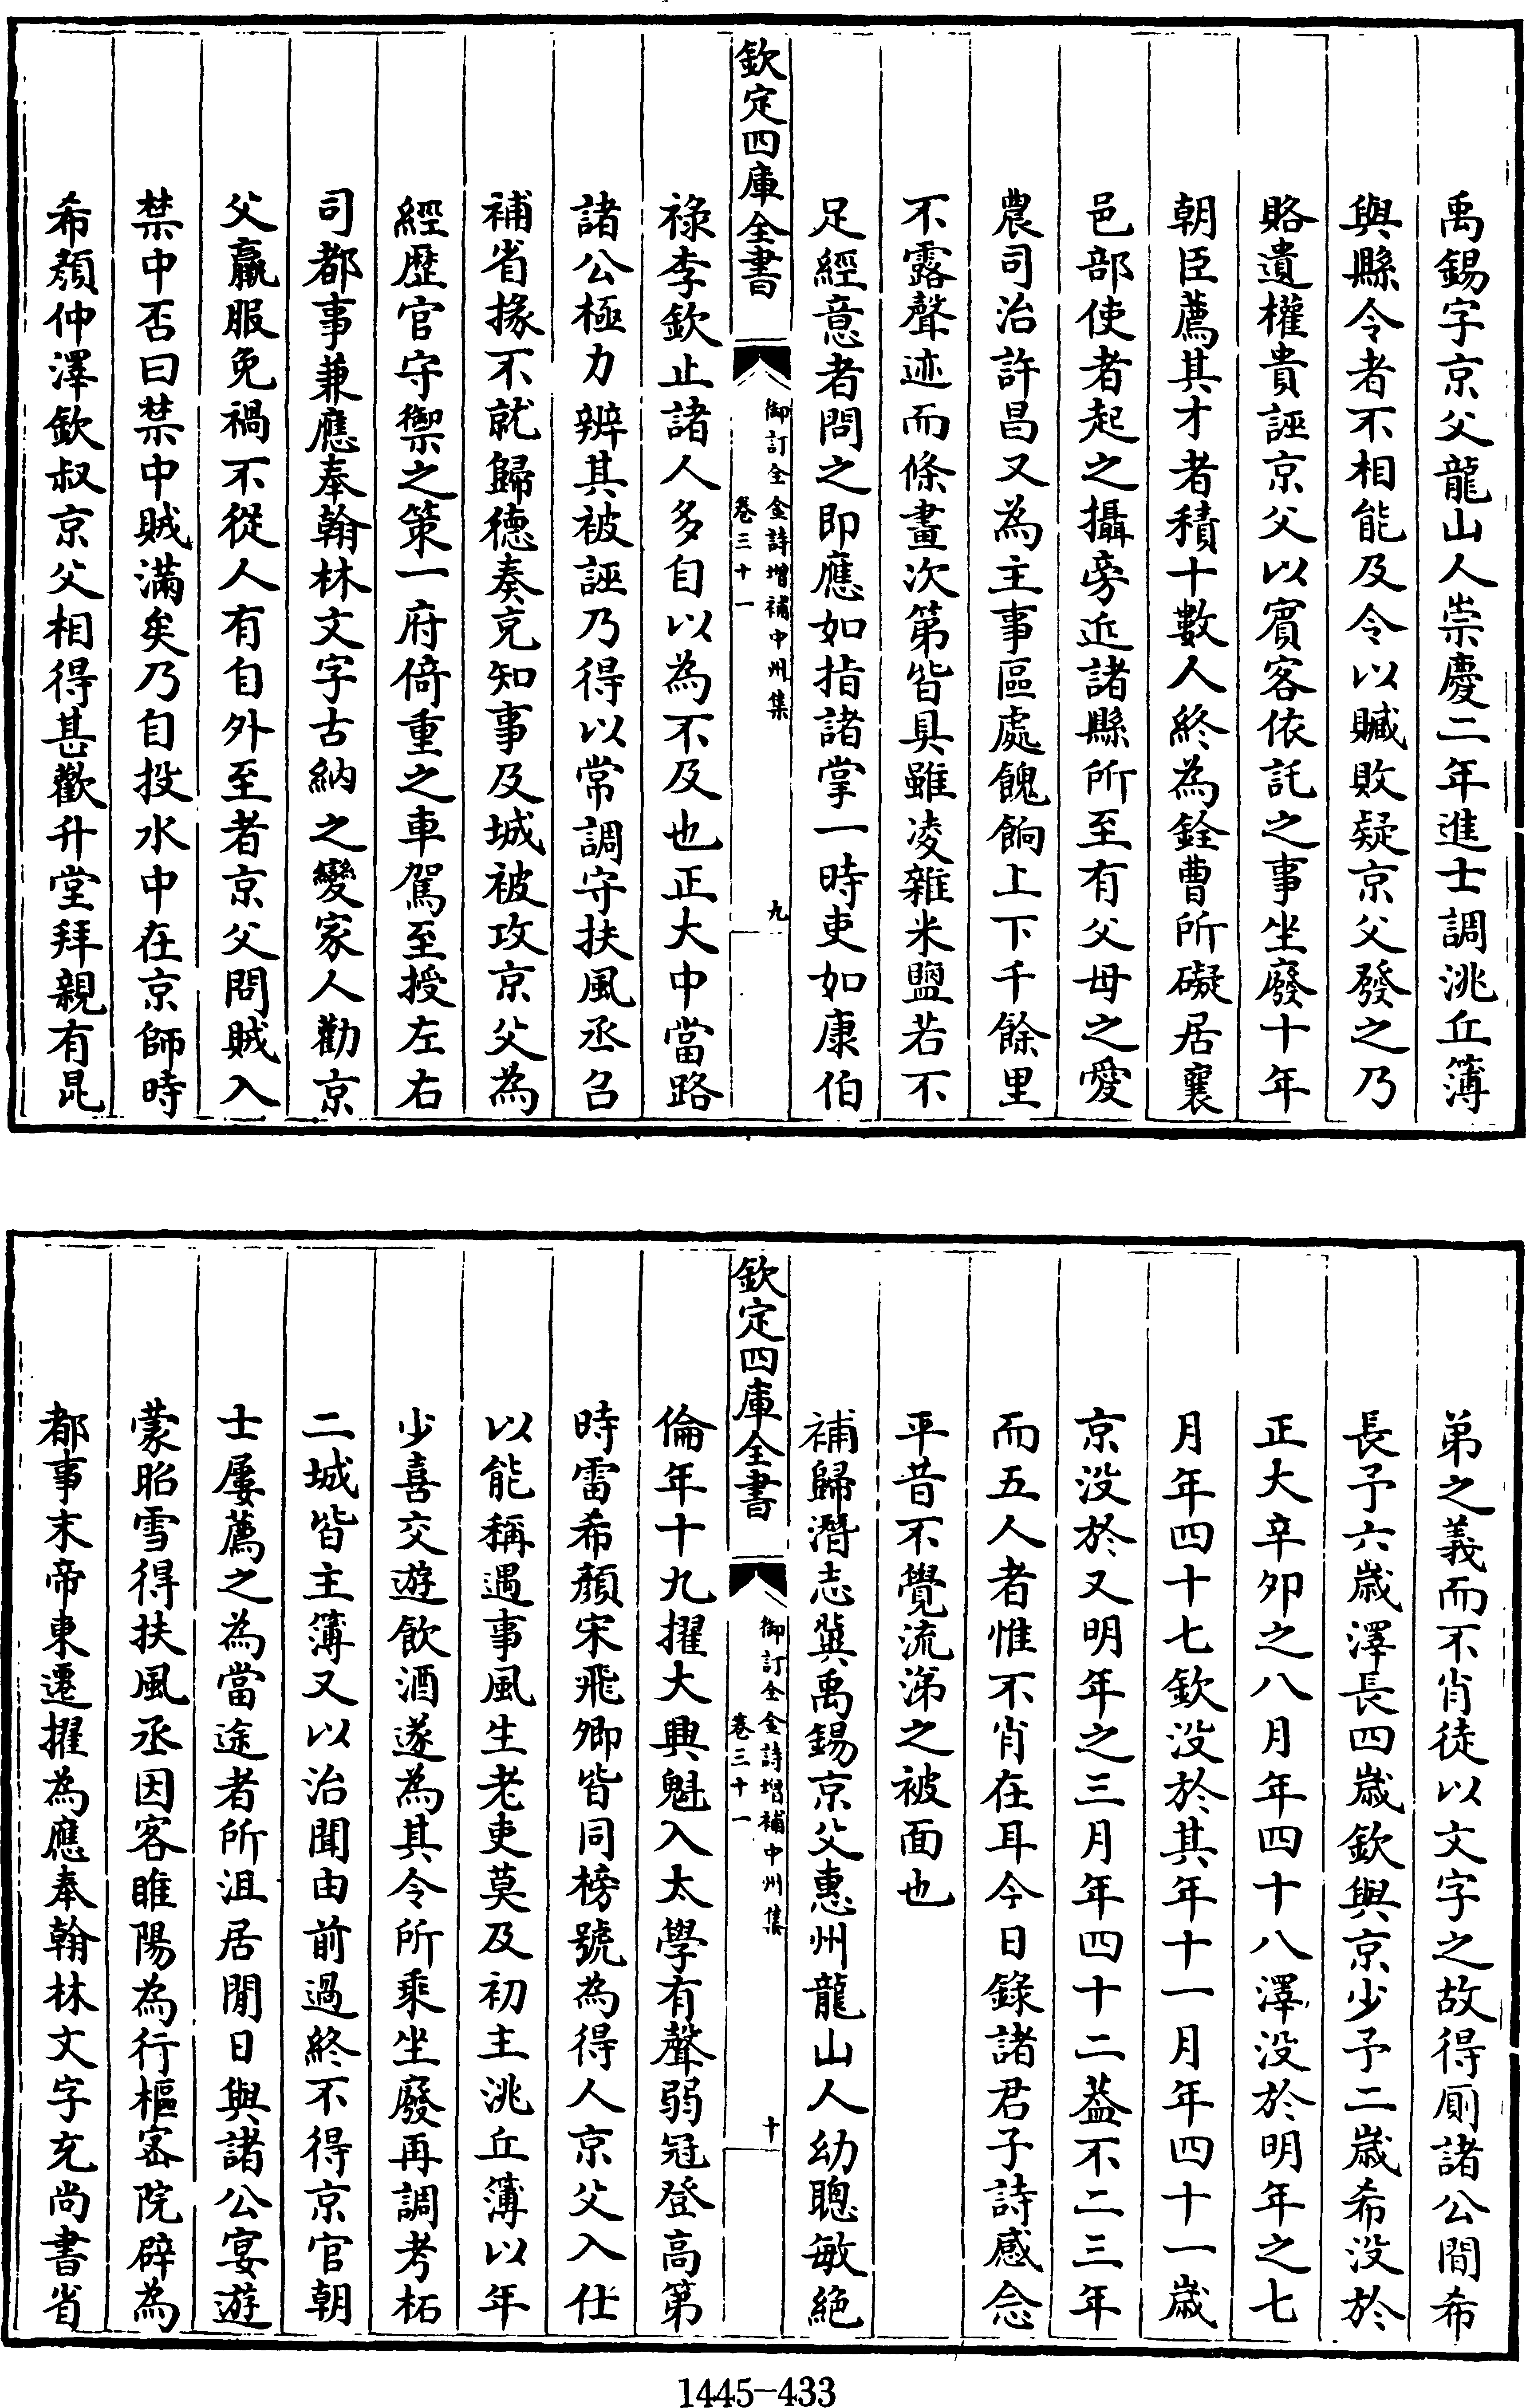 禹錫字京父龍山人崇慶二年進士調洮丘簿
與縣令者不相能及令以贓敗疑京父發之乃
賂遺權貴誣京父以賓客依託之事坐廢十年
朝臣薦其才者積十數人終為銓曹所礙居襄
邑部使者起之攝旁近諸縣所至有父母之愛
農司治許昌又為主事區處餽餉上下千餘里
不露聲迹而條畫次第皆具雖凌雜米鹽若不
足經意者問之即應如指諸掌一時吏如康伯
欽定四庫全書
御訂全金詩增補中州集
卷三十一
九
祿李欽止諸人多自以為不及也正大中當路
諸公極力辨其被誣乃得以常調守扶風丞召
補省掾不就歸德奏充知事及城被攻京父為
經歷官守禦之策一府倚重之車駕至授左右
司都事兼應奉翰林文字古納之變家人勸京
父羸服免禍不從人有自外至者京父問賊入
禁中否曰禁中賊滿矣乃自投水中在京師時
希顏仲澤欽叔京父相得甚歡升堂拜親有昆
弟之義而不肖徒以文字之故得廁諸公間希
長予六歲澤長四歲欽與京少予二歲希没於
正大辛夘之八月年四十八澤没於明年之七
月年四十七欽没於其年十一月年四十一歲
京没於又明年之三月年四十二葢不二三年
而五人者惟不肖在耳今日錄諸君子詩感念
平昔不覺流涕之被面也
補歸潛志冀禹錫京父惠州龍山人幼聰敏絶
欽定四庫全書
御訂全金詩增補中州集
卷三十一
十
倫年十九擢大興魁入太學有聲弱冠登高第
時雷希顏宋飛卿皆同榜號為得人京父入仕
以能稱遇事風生老吏莫及初主洮丘簿以年
少喜交遊飲酒遂為其令所乘坐廢再調考柘
二城皆主簿又以治聞由前過終不得京官朝
士屢薦之為當途者所沮居閒日與諸公宴遊
蒙昭雪得扶風丞因客睢陽為行樞密院辟為
都事末帝東遷擢為應奉翰林文字充尚書省
1445-433